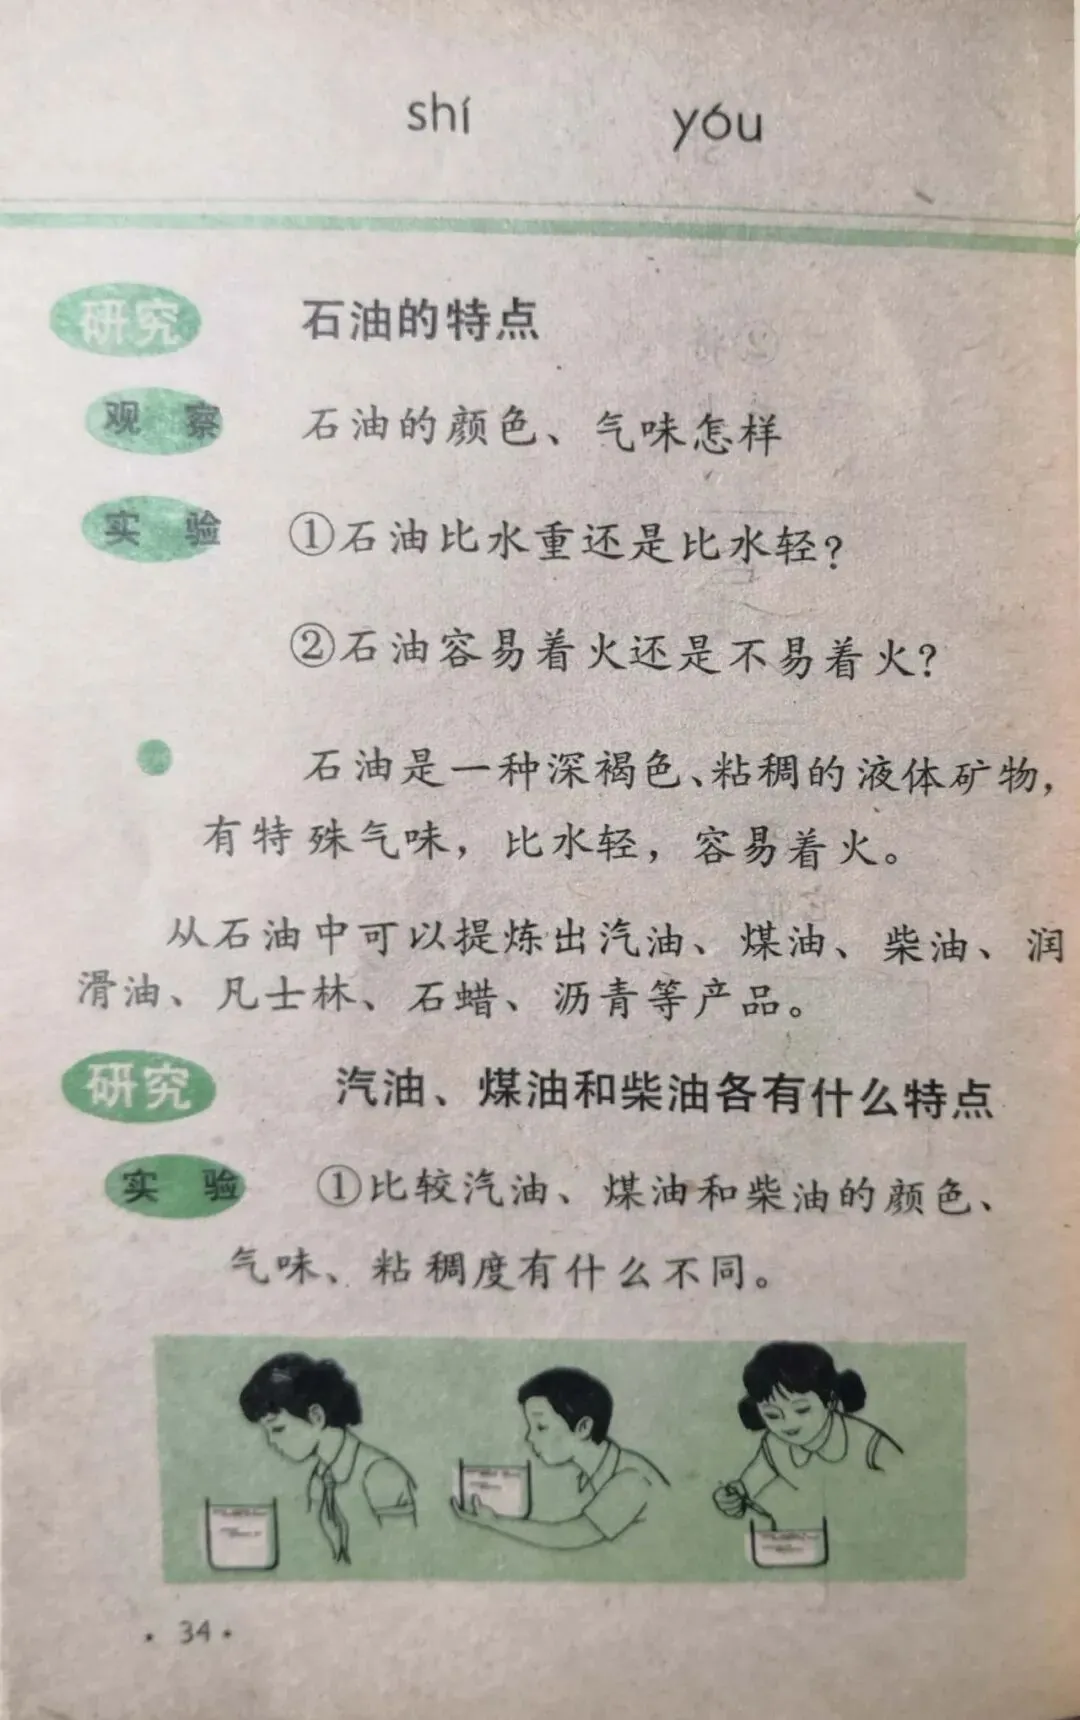 shí yóu
研究 石油的特点
观察 石油的颜色、气味怎样
实验 ①石油比水重还是比水轻?
②石油容易着火还是不易着火?
石油是一种深褐色、粘稠的液体矿物,
有特殊气味,比水轻,容易着火。
从石油中可以提炼出汽油、煤油、柴油、润
滑油、凡士林、石蜡、沥青等产品。
研究 汽油、煤油和柴油各有什么特点
实验 ①比较汽油、煤油和柴油的颜色、
气味、粘稠度有什么不同。
·34·